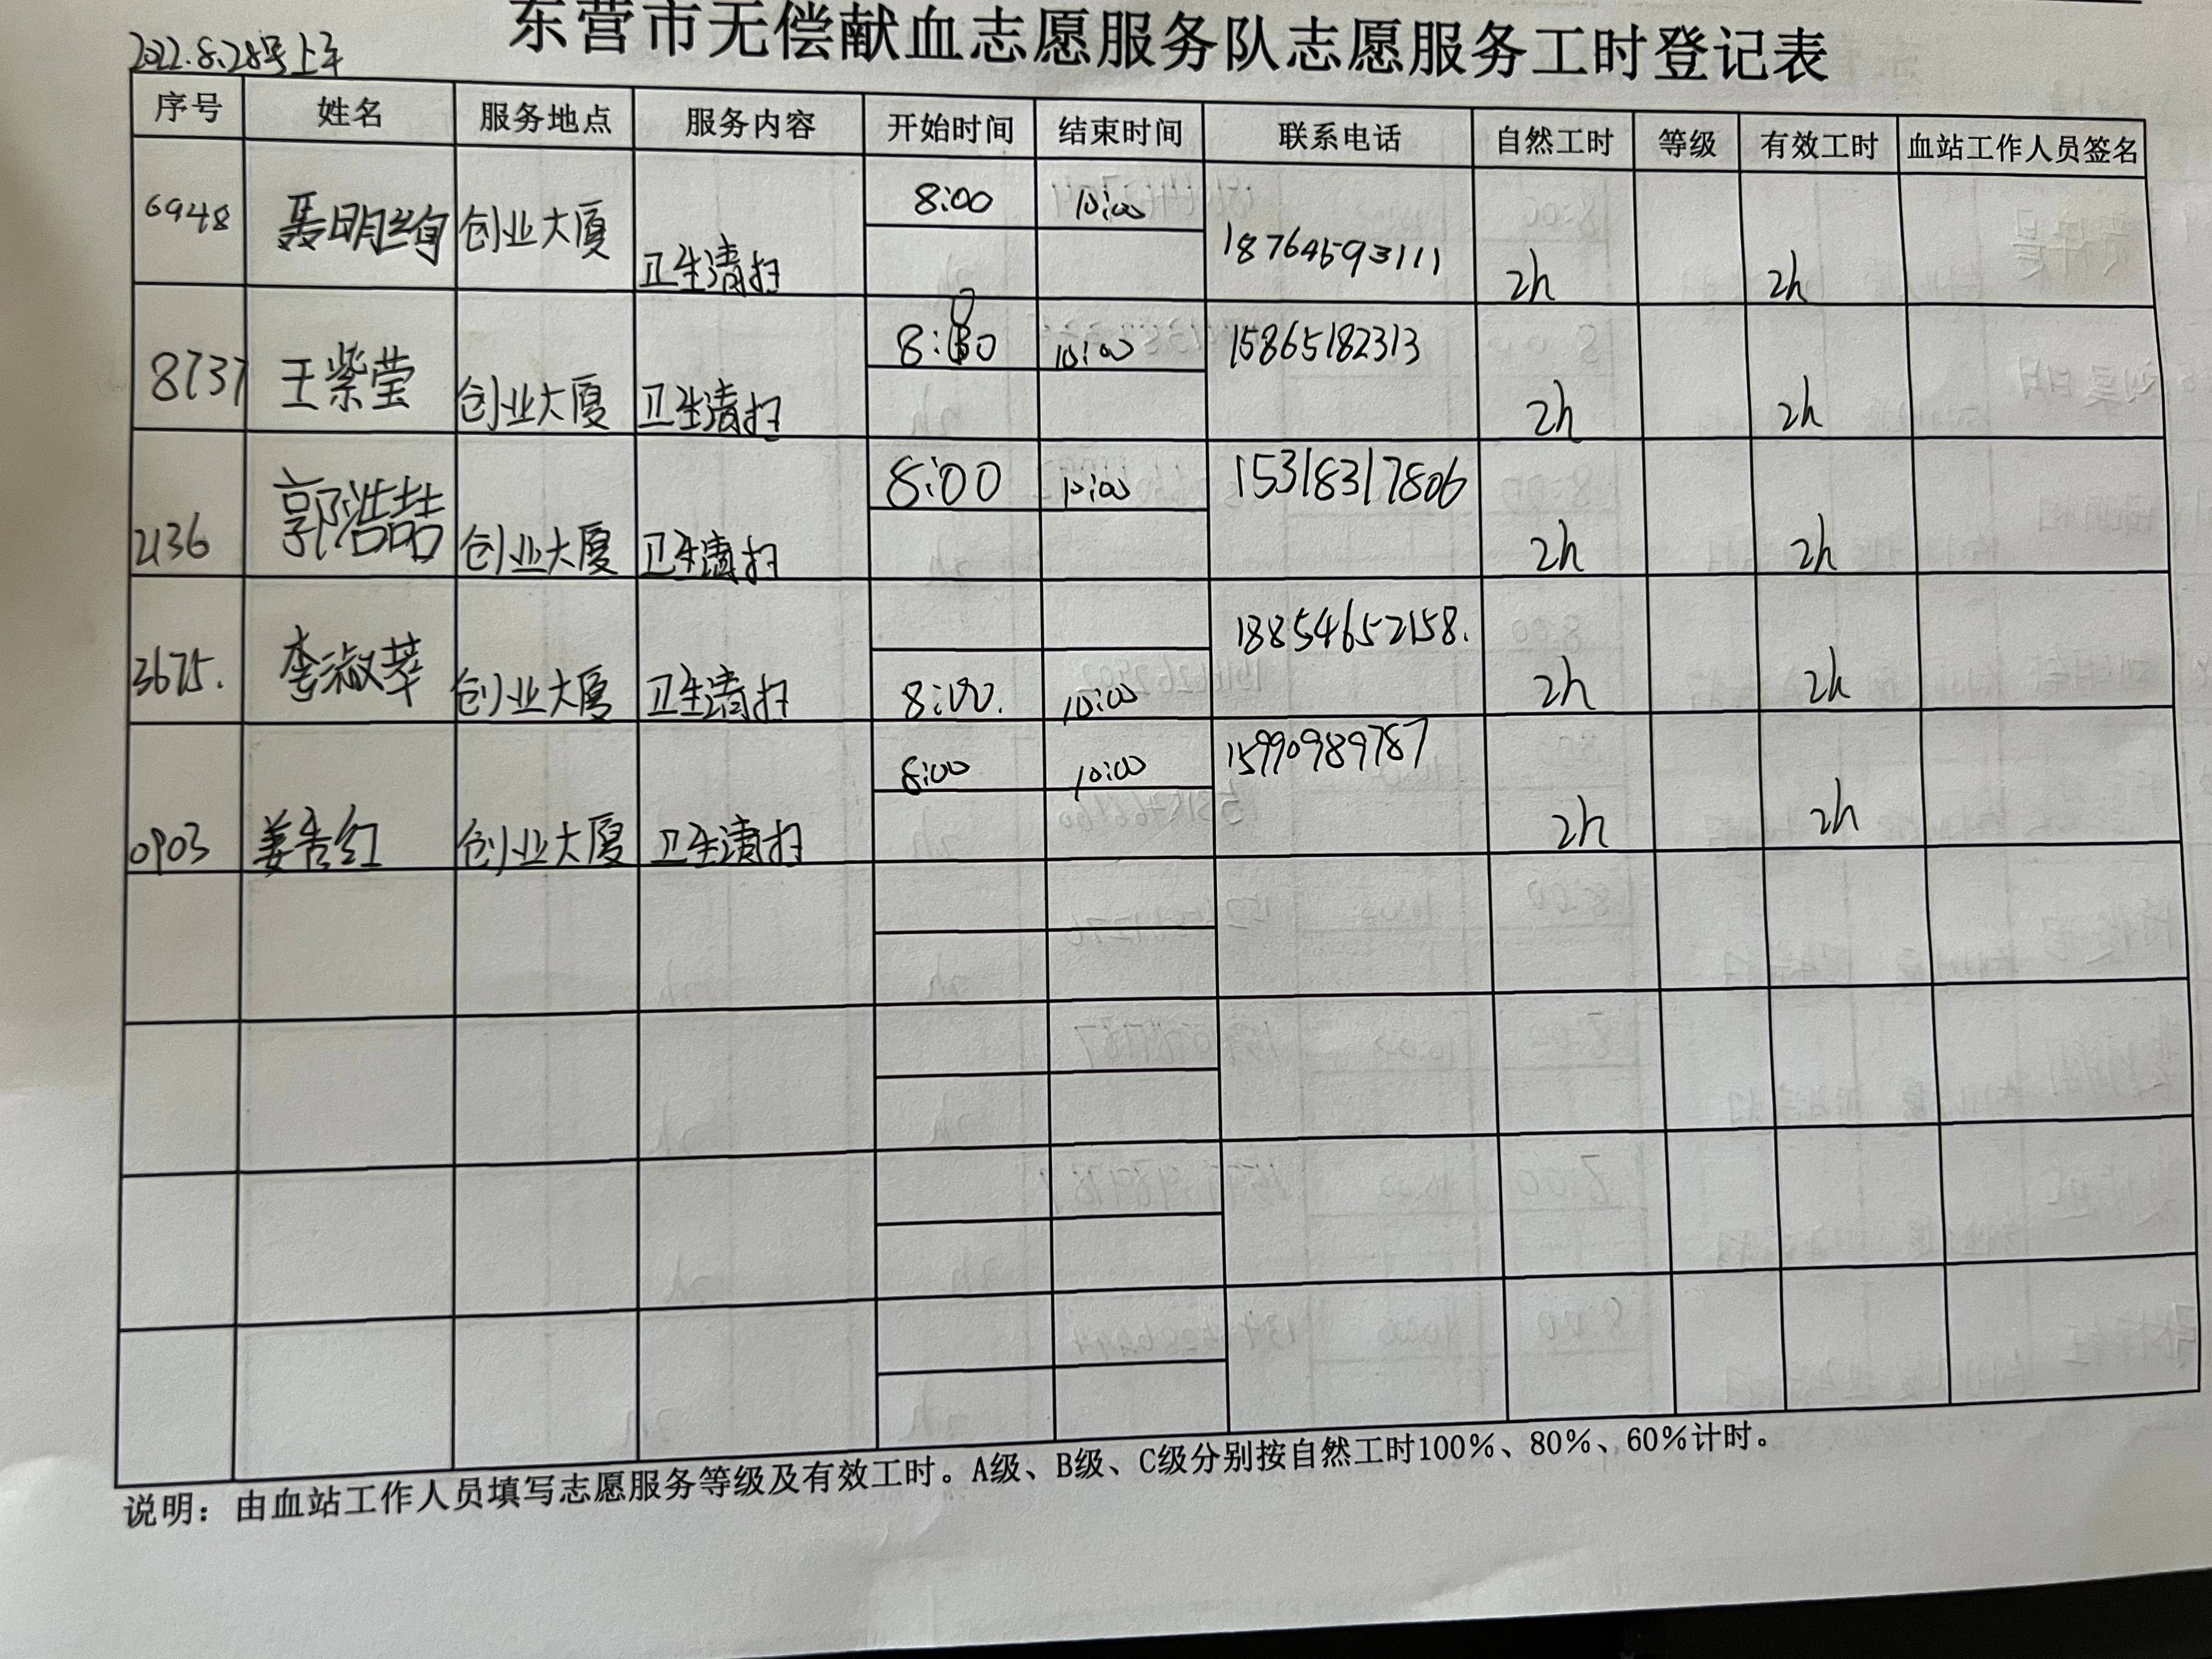 东营市无偿献血志愿服务队志愿服务工时登记表
2022.8.28号上午
序号 姓名 服务地点 服务内容 开始时间 结束时间 联系电话 自然工时 等级 有效工时 血站工作人员签名
6948 聂明绚 创业大厦 卫生清扫 8:00 10:00 187646593111 2h 2h
8737 王紫莹 创业大厦 卫生清扫 8:00 10:00 15865182313 2h 2h
2136 郭浩喆 创业大厦 卫生清扫 8:00 10:00 15318317806 2h 2h
3675. 李淑萃 创业大厦 卫生清扫 8:00. 10:00 18854652158. 2h 2h
0903 姜红 创业大厦 卫生清扫 8:00 10:00 15990989787 2h 2h
说明：由血站工作人员填写志愿服务等级及有效工时。A级、B级、C级分别按自然工时100%、80%、60%计时。